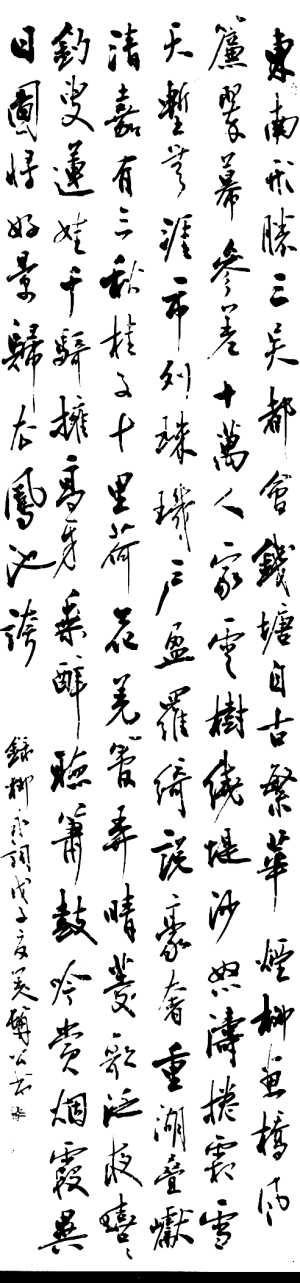 東南形勝三吳都會錢塘自古繁華煙柳畫橋風
簾翠幕參差十萬人家雲樹繞堤沙怒濤捲霜雪
天塹無涯市列珠璣戶盈羅綺競豪奢重湖疊巘
清嘉有三秋桂子十里荷花羌管弄晴菱歌泛夜嬉々
釣叟蓮娃千騎擁高牙乘醉聽簫鼓吟賞烟霞異
日圖將好景歸去鳳池誇
錄柳永詞戊子夏